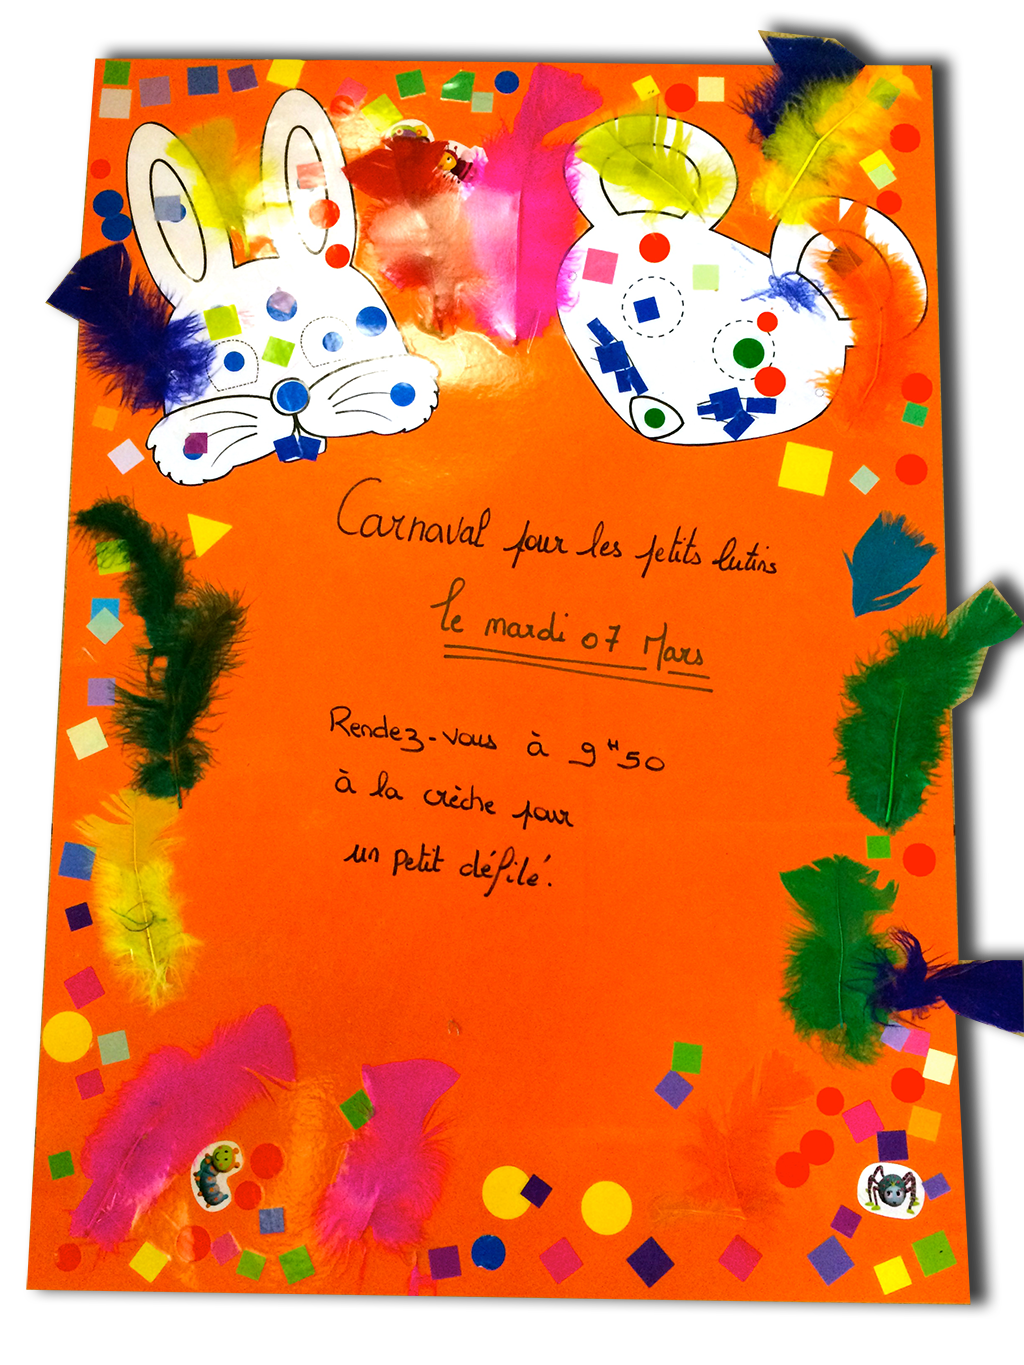 Carnaval pour les petits lutins
le mardi 07 Mars
Rendez-vous à 9H50
à la crèche pour
un petit défilé.